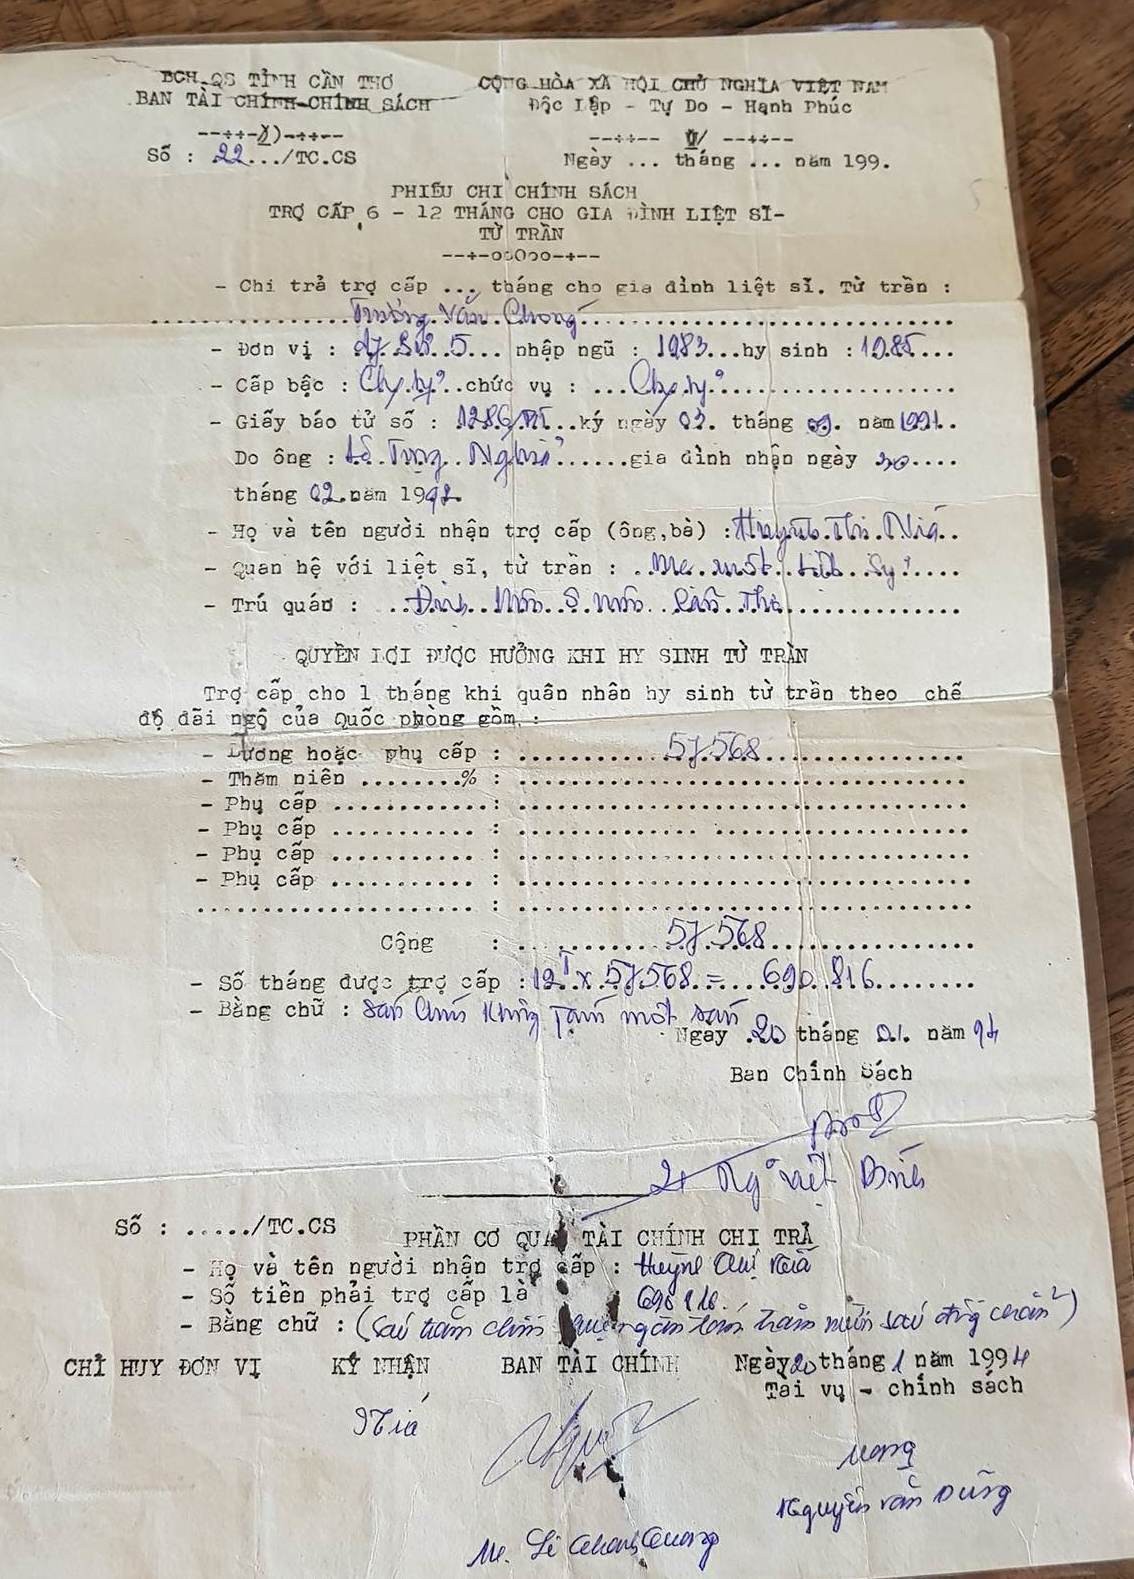 BCH.QS TỈNH CẦN THƠ
BAN TÀI CHÍNH-CHÍNH SÁCH
CỘNG HÒA XÃ HỘI CHỦ NGHĨA VIỆT NAM
Độc Lập - Tự Do - Hạnh Phúc
Số : 22.../TC.CS
Ngày ... tháng ... năm 199.
PHIẾU CHI CHÍNH SÁCH
TRỢ CẤP 6 - 12 THÁNG CHO GIA ĐÌNH LIỆT SĨ-
TỪ TRẦN
--+-ooOoo-+--
- Chi trả trợ cấp ... tháng cho gia đình liệt sĩ. Từ trần :
Trương Văn
- Đơn vị : 5... nhập ngũ : 1983...hy sinh :1985....
- Cấp bậc : ..chức vụ : ...
- Giấy báo tử số : 1286 ..ký ngày 03. tháng 09. năm 1991..
Do ông : Lê Trung Nghĩa......gia đình nhận ngày 20....
tháng 02.năm 1992.
- Họ và tên người nhận trợ cấp (ông,bà) :Huỳnh.Thị.Niá..
- Quan hệ với liệt sĩ, từ trần : .Mẹ. .. Liệt.. Sỹ.....
- Trú quán : ... Cần Thơ
QUYỀN LỢI ĐƯỢC HƯỞNG KHI HY SINH TỪ TRẦN
Trợ cấp cho 1 tháng khi quân nhân hy sinh từ trần theo chế
độ đãi ngộ của Quốc phòng gồm :
- Lương hoặc phụ cấp : ............57.568................
- Thâm niên ........% : ................................
- Phụ cấp ............: ................................
- Phụ cấp ........... : ................................
- Phụ cấp ........... : ................................
- Phụ cấp ........... : ................................
...................... : ................................
Cộng : ............57.568................
- Số tháng được trợ cấp :12T x 57.568 = 690.816........
- Bằng chữ : Sáu Chín Không Tám một sáu
Ngày .20 tháng 01. năm 94
Ban Chính Sách
2/ Ngô Việt
Số : ...../TC.CS
PHẦN CƠ QUAN TÀI CHÍNH CHI TRẢ
- Họ và tên người nhận trợ cấp : Huỳnh Thị Niá
- Số tiền phải trợ cấp là 690 816.
- Bằng chữ : (Sáu trăm chín mươi ngàn tám trăm mười sáu đồng chẵn)
CHỈ HUY ĐƠN VỊ
KÝ NHẬN
BAN TÀI CHÍNH
Ngày 20 tháng 1 năm 1994
Tài vụ - chính sách
Niá
Nguyễn Văn Dũng
Lê